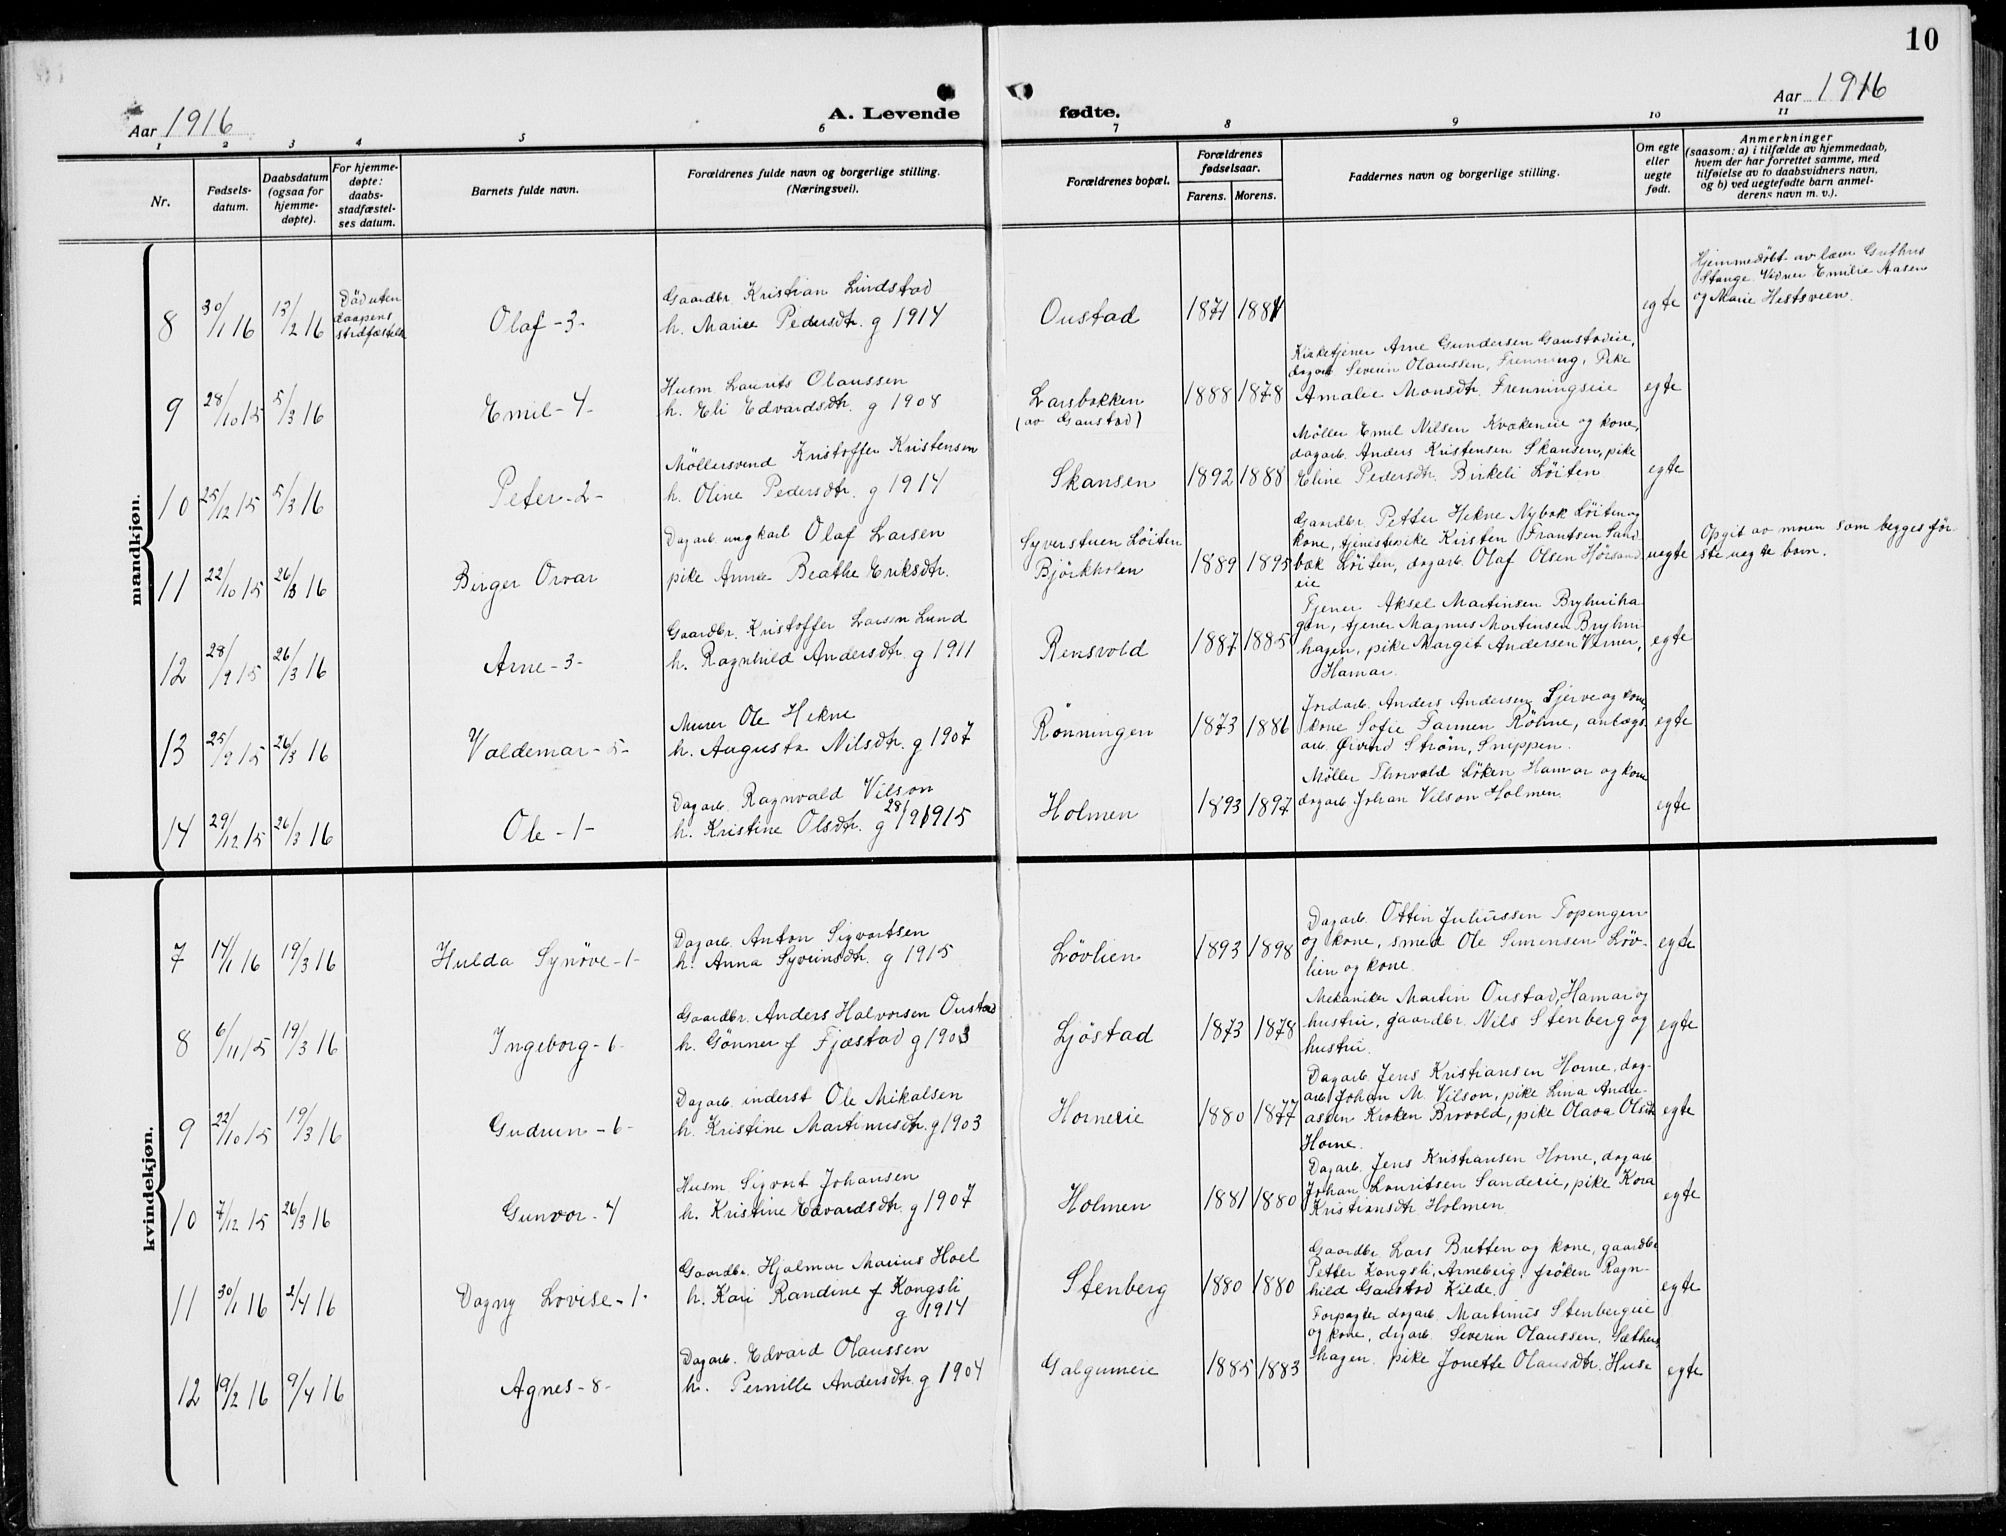 10
Aar 1916
A. Levende
fødte.
Aar 1916
1 2 3 4 5 6 7 8 9 10 11
Nr.
Fødsels-
datum.
Daabsdatum
(ogsaa for
hjemme-
døpte).
For hjemme-
døpte:
daabs-
stadfæstel-
ses datum.
Barnets fulde navn.
Forældrenes fulde navn og borgerlige stilling.
(Næringsvei).
Forældrenes bopæl.
Forældrenes
fødselsaar.
Farens. Morens.
Faddernes navn og borgerlige stilling.
Om egte
eller
uegte
født.
Anmerkninger
(saasom: a) i tilfælde av hjemmedaab,
hvem der har forrettet samme, med
tilføielse av to daabsvidners navn,
og b) ved uegtefødte barn anmel-
derens navn m. v.).
mandkjøn.
8
30/1 16
13/2 16
Död uten
daapens
stadfæstelse
Olaf - 3 -
Gaardbr. Kristian Lindstad
h. Marie Pedersdtr. g 1914
Oustad
1871 1884
egte
Hjemmedöbt av lærer
Stange. Vidner Emilie Aasen
og Marie Hestsveen.
9
28/10 15
5/3 16
Emil - 4 -
Husm. Laurits Olaussen
h. Eli Edvardsdtr. g 1908
Larsbakken
(av Gaustad)
1888 1878
Kirketjener Arne Gundersen Gaustadeie,
dagarb. Severin Olaussen, Frenning, Pike
Amalie Monsdtr. Frenningseie
egte
10
25/12 15
5/3 16
Peter - 2 -
Möllersvend Kristoffer Kristensen
h. Oline Pedersdtr. g 1914
Skansen
1892 1888
Möller Emil Nilsen Kvækeneie og kone,
dagarb. Anders Kristensen Skansen, pike
Eline Pedersdtr. Birkeli Löiten
egte
11
22/10 15
26/3 16
Birger Orvar
Dagarb. ungkarl Olaf Larsen
pike Anna Beathe Eriksdtr.
Syverstuen Löiten
Björkholen
1889 1895
Gaardbr. Petter Hekne Nybak Löiten og
kone, tjenestepike Kristen Frantsen Sand-
bæk Löiten, dagarb. Olaf Olsen Hörsand-
eie
uegte
Opgit av moren som begges för-
ste uegte barn.
12
28/9 15
26/3 16
Arne - 3 -
Gaardbr. Kristoffer Larsen Lund
h. Ragnhild Andersdtr. g 1911
Rensvold
1887 1885
Tjener Aksel Martinsen Bryhniha-
gen, tjener Magnus Martinsen Bryhni-
hagen, pike Margit Andersen Verner,
Hamar.
egte
13
25/9 15
26/3 16
Valdemar - 5 -
Murer Ole Hekne
h. Augusta Nilsdtr. g 1907
Rönningen
1873 1886
Jordarb. Anders Andersen Ljerve og kone,
kone Sofie Farmen Röhne, anlægs-
arb. Öivind Ström, Snippen.
egte
14
29/12 15
26/3 16
Ole - 1 -
Dagarb. Ragnvald Vilson
h. Kristine Olsdtr. g 28/9 1915
Holmen
1893 1897
Möller Thorvald Löken Hamar og kone
dagarb. Johan Vilson Holmen.
egte
kvindekjøn.
7
14/1 16
19/3 16
Hulda Synöve - 1 -
Dagarb. Anton Sigvartsen
h. Anna Syverinsdtr. g 1915
Lövlien
1893 1898
Dagarb. Ottin Juliussen Topengen
og kone, smed Ole Simensen Löv-
lien og kone.
egte
8
6/11 15
19/3 16
Ingeborg - 6 -
Gaardbr. Anders Halvorsen Oustad
h. Gönner f Fjæstad g 1903
Ljöstad
1873 1878
Mekaniker Martin Oustad, Hamar og
hustru, gaardbr. Nils Stenberg og
hustru.
egte
9
22/10 15
19/3 16
Gudrun - 6 -
Dagarb. inderst Ole Mikalsen
h. Kristine Martinusdtr. g 1903
Horneeie
1880 1877
Dagarb. Jens Kristiansen Horne, dag-
arb. Johan M. Vilson, pike Lina Andre-
assen Kroken Brovold, pike Olava Olsdtr.
Horne.
egte
10
7/12 15
26/3 16
Gunvor - 4
Husm. Sigvart Johansen
h. Kristine Edvardsdtr. g 1907
Holmen
1881 1880
Dagarb. Jens Kristiansen Horne, dagarb.
Johan Lauritsen Sandeeie, pike Kora
Kristiansdtr. Holmen.
egte
11
30/1 16
2/4 16
Dagny Lovise - 1 -
Gaardbr. Hjalmar Marius Hoel
h. Kari Randine f Kongsli
g 1914
Stenberg
1880 1880
Gaardbr. Lars Bretten og kone, gaardbr.
Petter Kongsli, Arneberg, fröken Ragn-
hild Gaustad Kilde.
egte
12
19/2 16
9/4 16
Agnes - 8 -
Dagarb. Edvard Olaussen
h. Pernille Andersdtr. g 1904
Galguneie
1885 1883
Forpagter dagarb. Martinus Stenbergeie
og kone, dagarb. Severin Olaussen, Sæther-
hagen, pike Jonette Olausdtr. Huse
egte